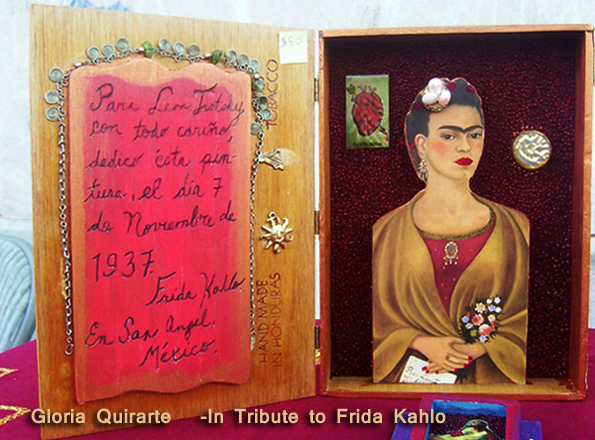 Para Leon Trotsky
con todo cariño,
dedico ésta pin-
tura, el día 7
de Noviembre de
1937.
Frida Kahlo
En San Angel,
México.
TOBACCO
HAND MADE
IN HONDURAS
Gloria Quirarte -In Tribute to Frida Kahlo